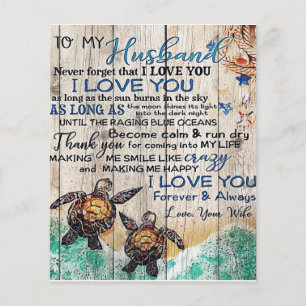 TO MY Husband
Never forget that I LOVE YOU
I LOVE YOU
as long as the sun burns in the sky
AS LONG AS the moon shines its light
into the dark night
UNTIL THE RAGING BLUE OCEANS
Become calm & run dry
Thank you for coming into MY LIFE
MAKING ME SMILE LIKE crazy
AND MAKING ME HAPPY
I LOVE YOU
Forever & Always
Love, Your Wife